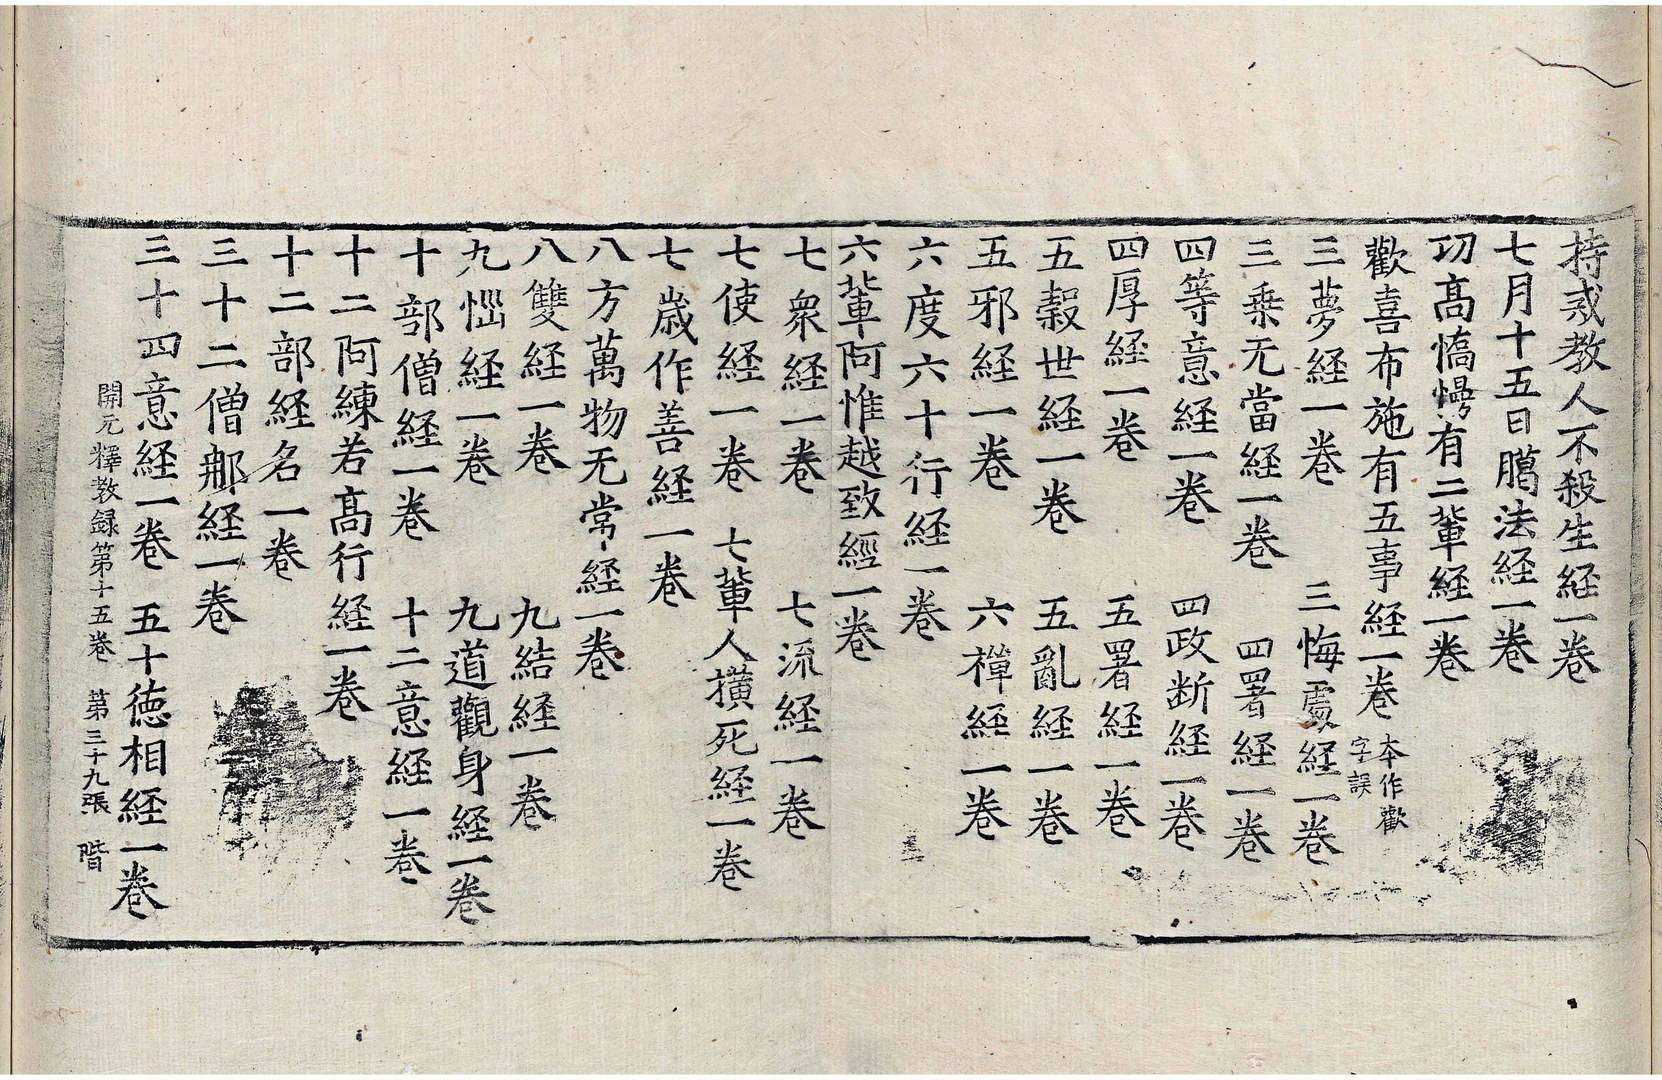 持戒教人不殺生経一卷
七月十五日臈法経一卷
功高憍慢有二輩経一卷
歡喜布施有五事経一卷 本作歡字誤
三夢経一卷 三悔處経一卷
三乗无當経一卷 四署経一卷
四等意経一卷 四政断経一卷
四厚経一卷 五署経一卷
五穀世経一卷 五亂経一卷
五邪経一卷 六禪経一卷
六度六十行経一卷
六輩阿惟越致經一卷
七衆経一卷 七流経一卷
七使経一卷 七輩人撗死経一卷
七歳作善経一卷
八方萬物无常経一卷
八雙経一卷 九結経一卷
九惱経一卷 九道觀身経一卷
十部僧経一卷 十二意経一卷
十二阿練若髙行経一卷
十二部経名一卷
三十二僧那経一卷
三十四意経一卷 五十徳相経一卷
開元釋教録第十五卷 第三十九張 階